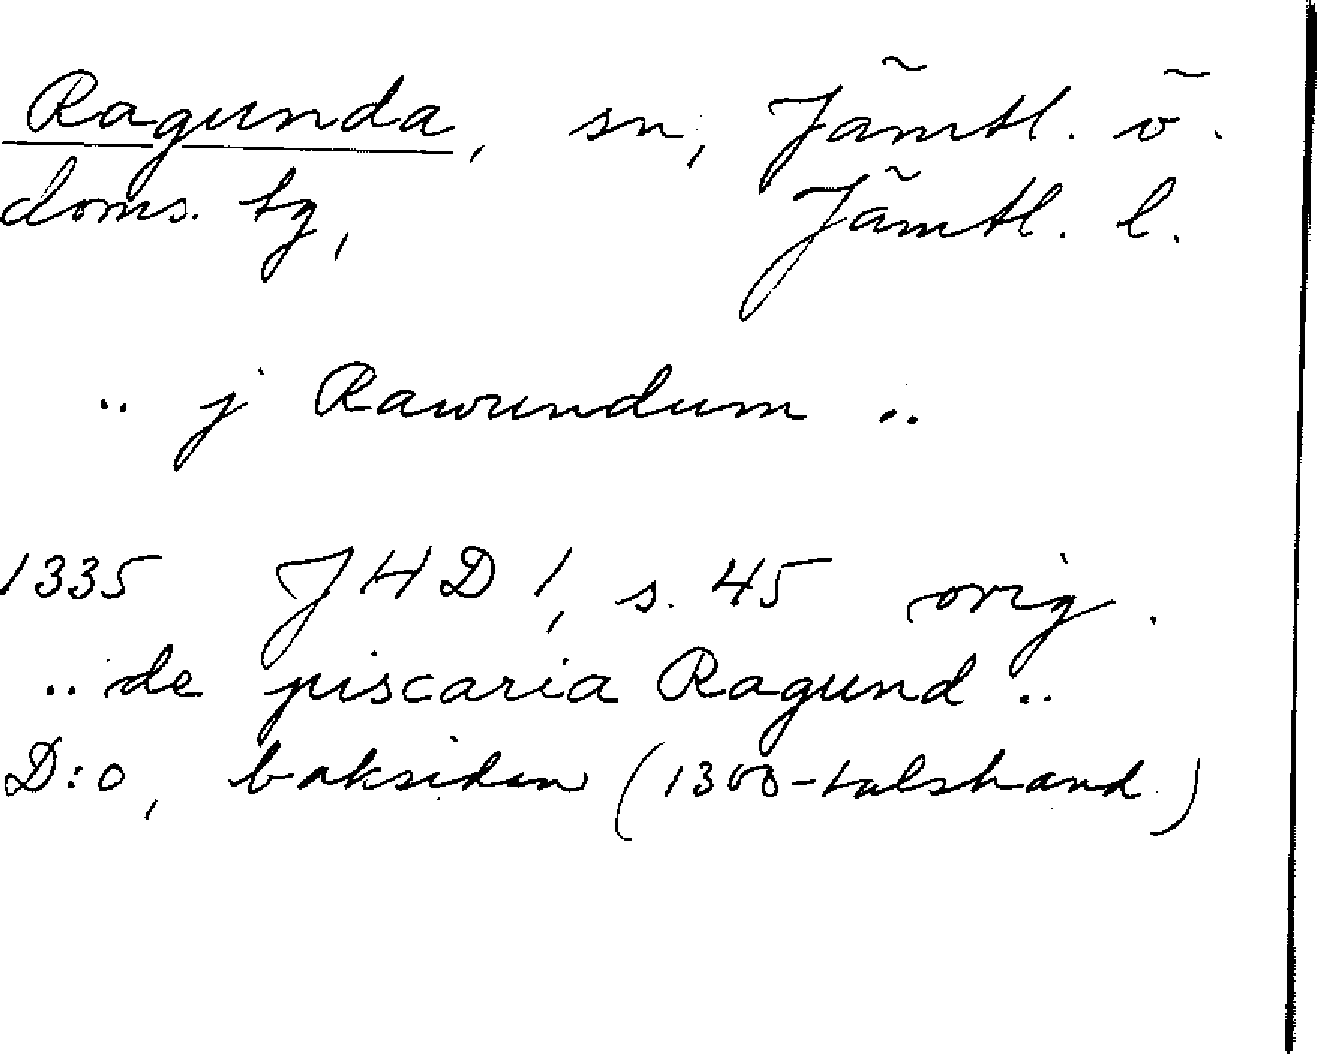 Ragunda, sn, Jämtl. ö.
doms. tg, Jämtl. l.
.. j Rawundum ..
1335 JHD 1, s. 45 orig.
.. de piscaria Ragund ..
D:o, baksidan (1300-talshand.)